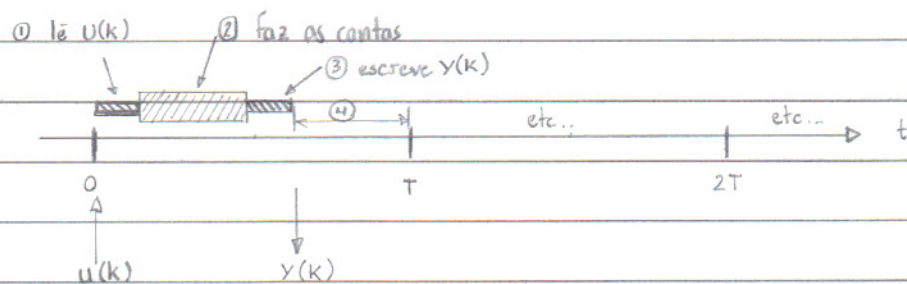 ① lê U(k)
② faz as contas
③ escreve Y(K)
④
etc..
etc...
t
0
T
2T
u(k)
Y(K)